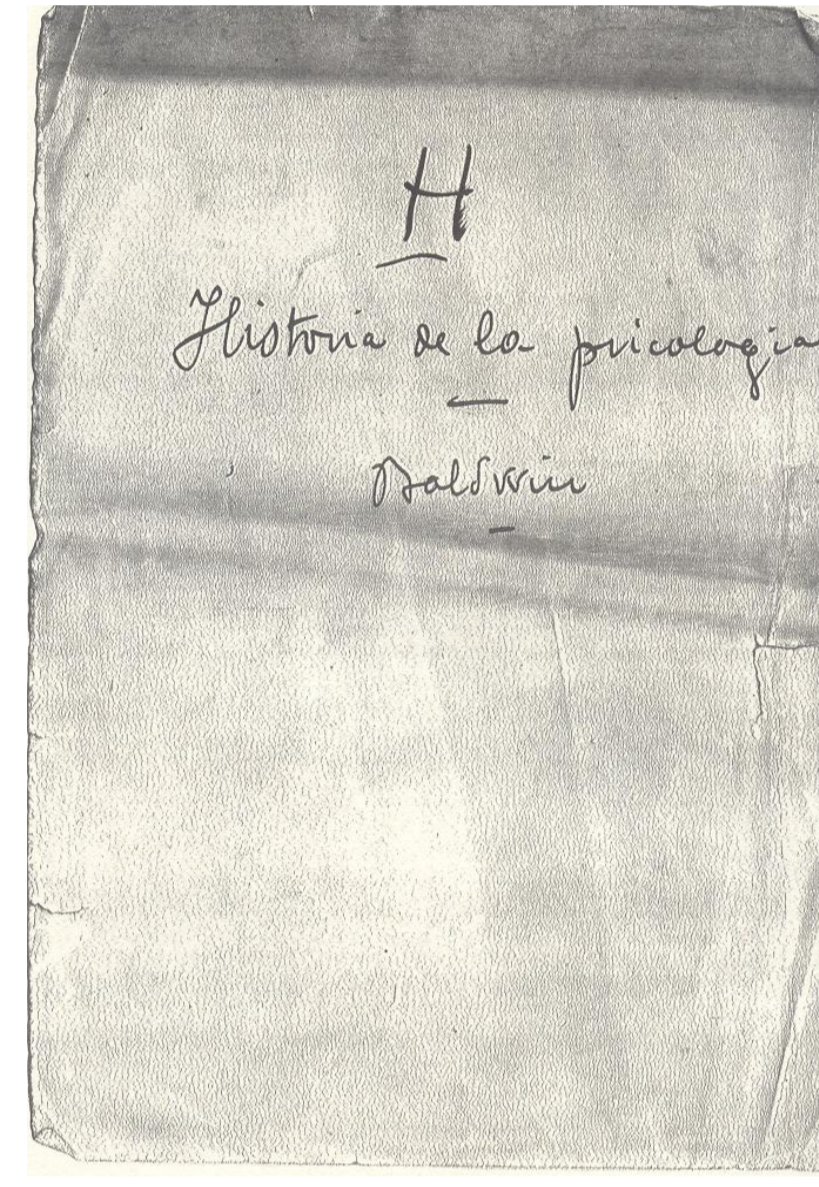 H
Historia de la psicologia
Baldwin